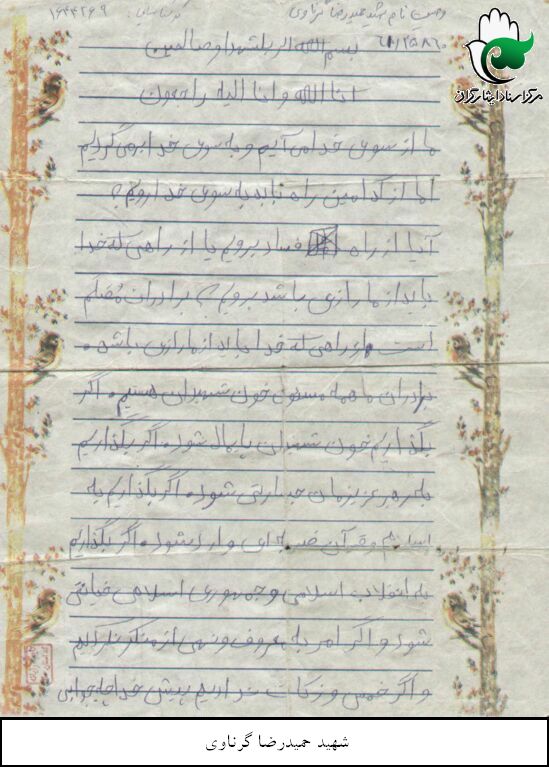 وصیت نامه شهید حمیدرضا گرناوی
۱۶۴۴۲۶۹
مرکز اسناد ایثارگران
بسم الله الرب الشهدا و صالحین
انا الله و انا الیه راجعون
ما از سوی خدا می آیم و به سوی خدا برمی گردیم
اما از کدامین راه باید به سوی خدا رویم؟
آیا از راه فساد برویم یا از راهی که خدا
باید از ما رازی باشد برویم؟ برادران
است از راهی که خدا باید از ما رازی باشد.
برادران ما همه مسئول خون شهیدان هستیم. اگر
بگذاریم خون شهیدان پایمال شود. اگر بگذاریم
به رهبر عزیزمان جسارتی شود. اگر بگذاریم به
اسلام و قرآن ضربه ای وارد شود. اگر بگذاریم
به انقلاب اسلامی و جمهوری اسلامی خیانتی
شود و اگر امر به معروف و نهی از منکر نکنیم
و اگر خمس و زکات ندادیم پیش خدا چه جوابی
شهید حمیدرضا گرناوی